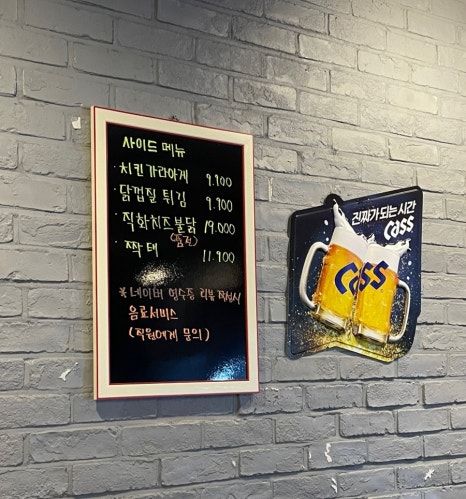 사이드 메뉴
· 치킨 가라아게 9.900
· 닭껍질 튀김 9.900
· 직화치즈불닭 19.000
· 짝태 11.900
네이버 영수증 리뷰 작성시
음료서비스
(직원에게 문의)
진짜가 되는 시간
cass
cass